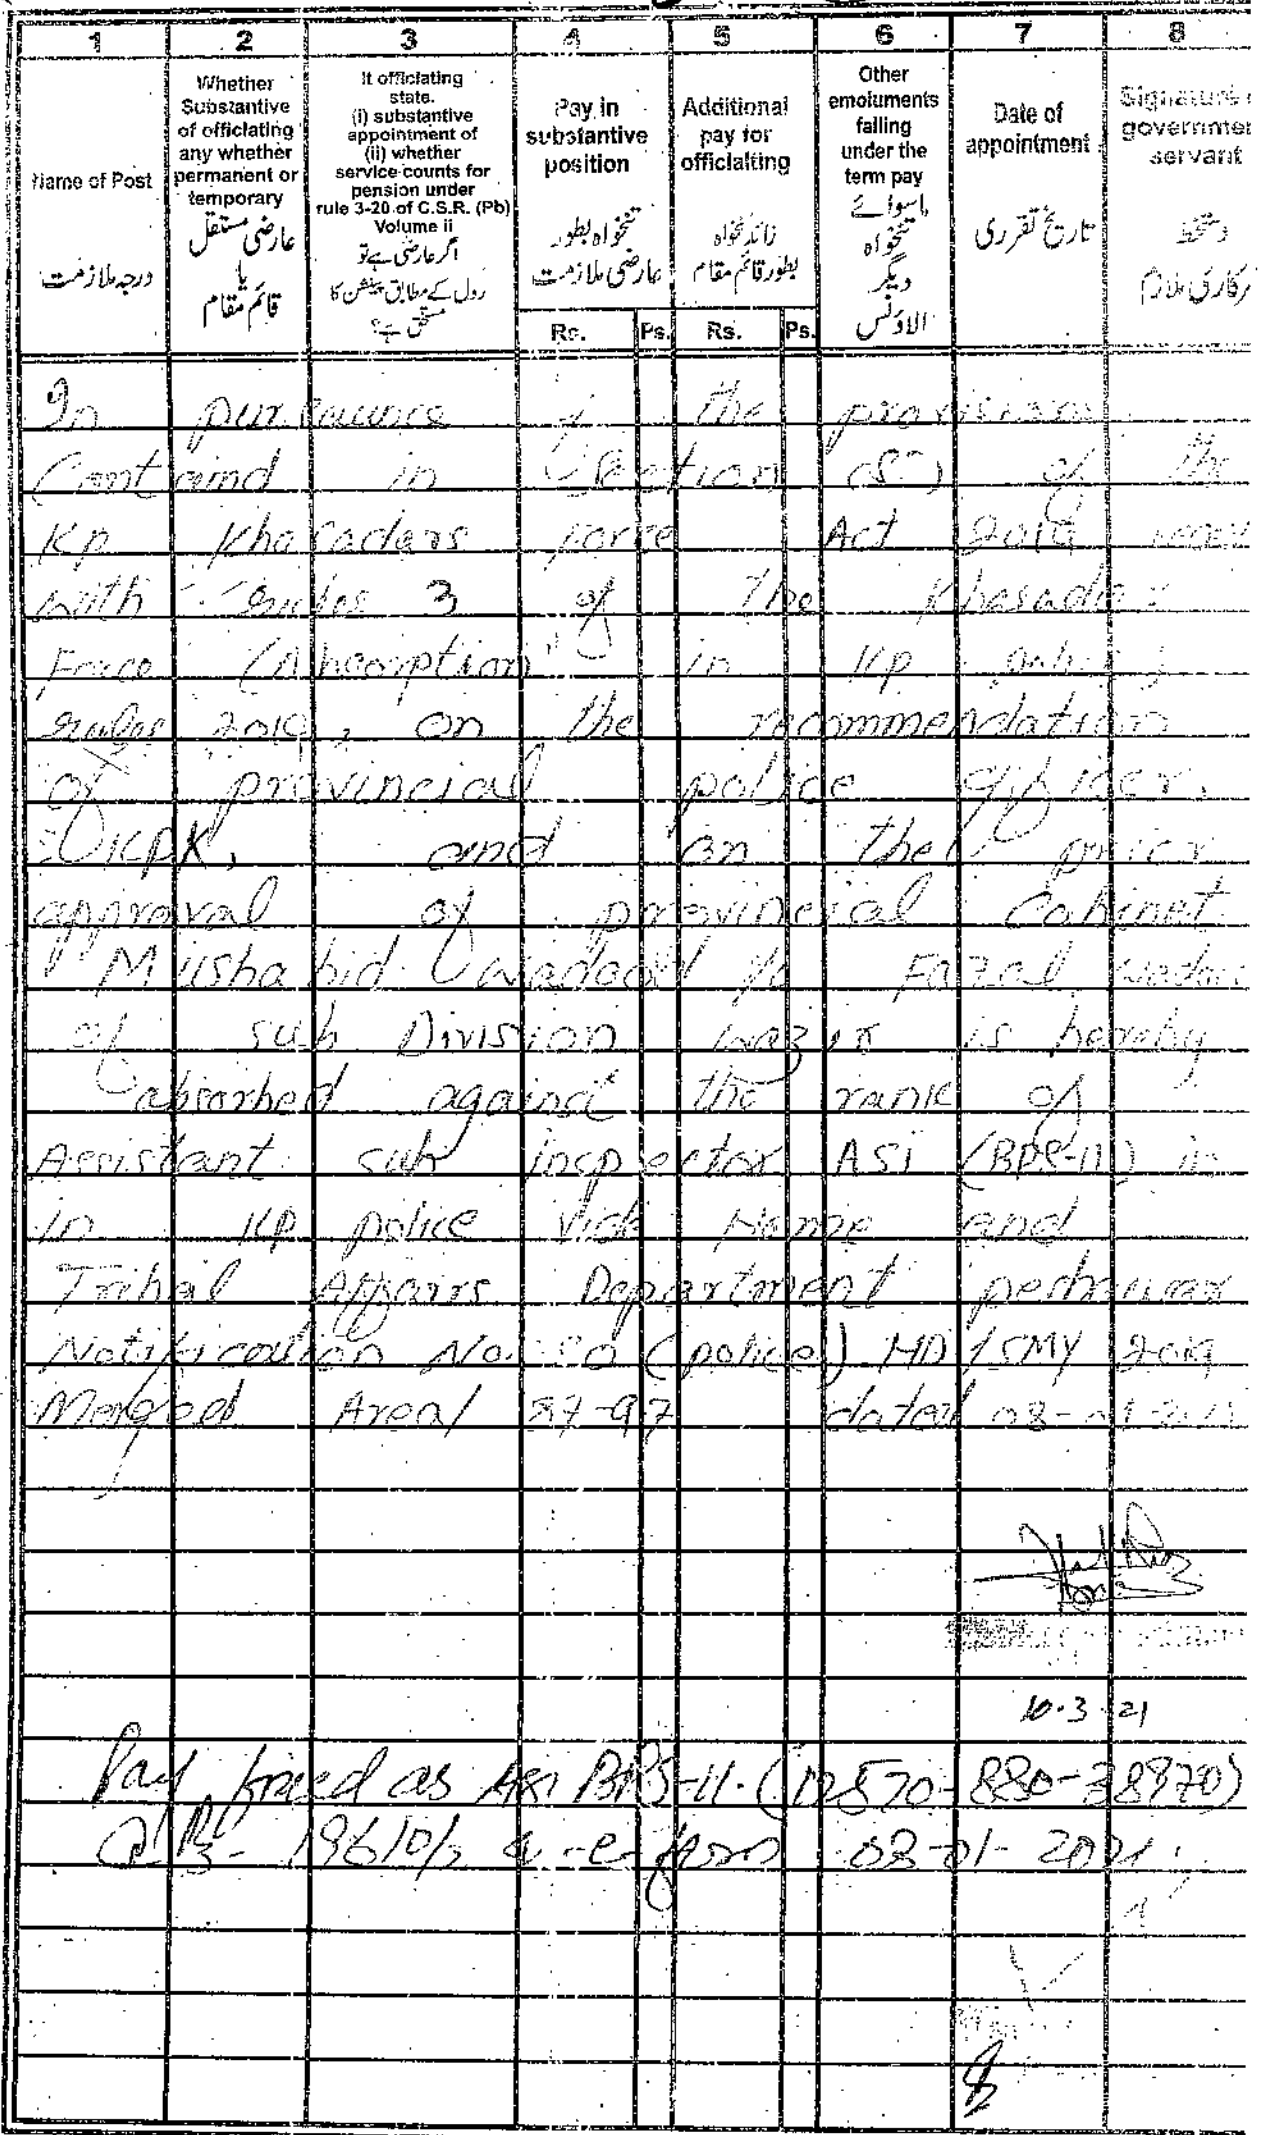 1 2 3 4 5 6 7 8
Name of Post
درجہ ملازمت
Whether
Substantive
of officiating
any whether
permanent or
temporary
عارضی مستقل
یا
قائم مقام
It officiating
state.
(i) substantive
appointment of
(ii) whether
service counts for
pension under
rule 3-20 of C.S.R. (Pb)
Volume ii
اگر عارضی ہے تو
رول کے مطابق پینشن کا
مستحق ہے؟
Pay in
substantive
position
تنخواہ بطور
عارضی ملازمت
Rs. Ps.
Additional
pay for
officialting
زائد تنخواہ
بطور قائم مقام
Rs. Ps.
Other
emoluments
falling
under the
term pay
ماسوائے
تنخواہ
دیگر
الاؤنس
Date of
appointment
تاریخ تقرری
Signature
governme
servant
دستخط
رکاری ملازم
In pursuance of the provision
Containd in Section (5) of the
Kp Khasadars force Act 2019
with rules 3 of The Khasadar
Force (Abcorption) in Kp
rules 2019, on the recommendation
of provincial police officer,
KPK, and on the prior
approval of provincial Cabinet
Mushahid wadood s/o Fazal
of sub Division wazir is hereby
absorbed against the rank of
Assistant sub inspector ASI (BPS-11) in
in KP police vide Home and
Tribal Affairs Department peshawar
Notification No. (police) HD / 2019
Merged Area/ 57-97 dated 08-01-
10.3.21
Pay fixed as ASI BPS-11. (12570-880-38970)
@ Rs- 19610/- w-e-from 08-01-2021